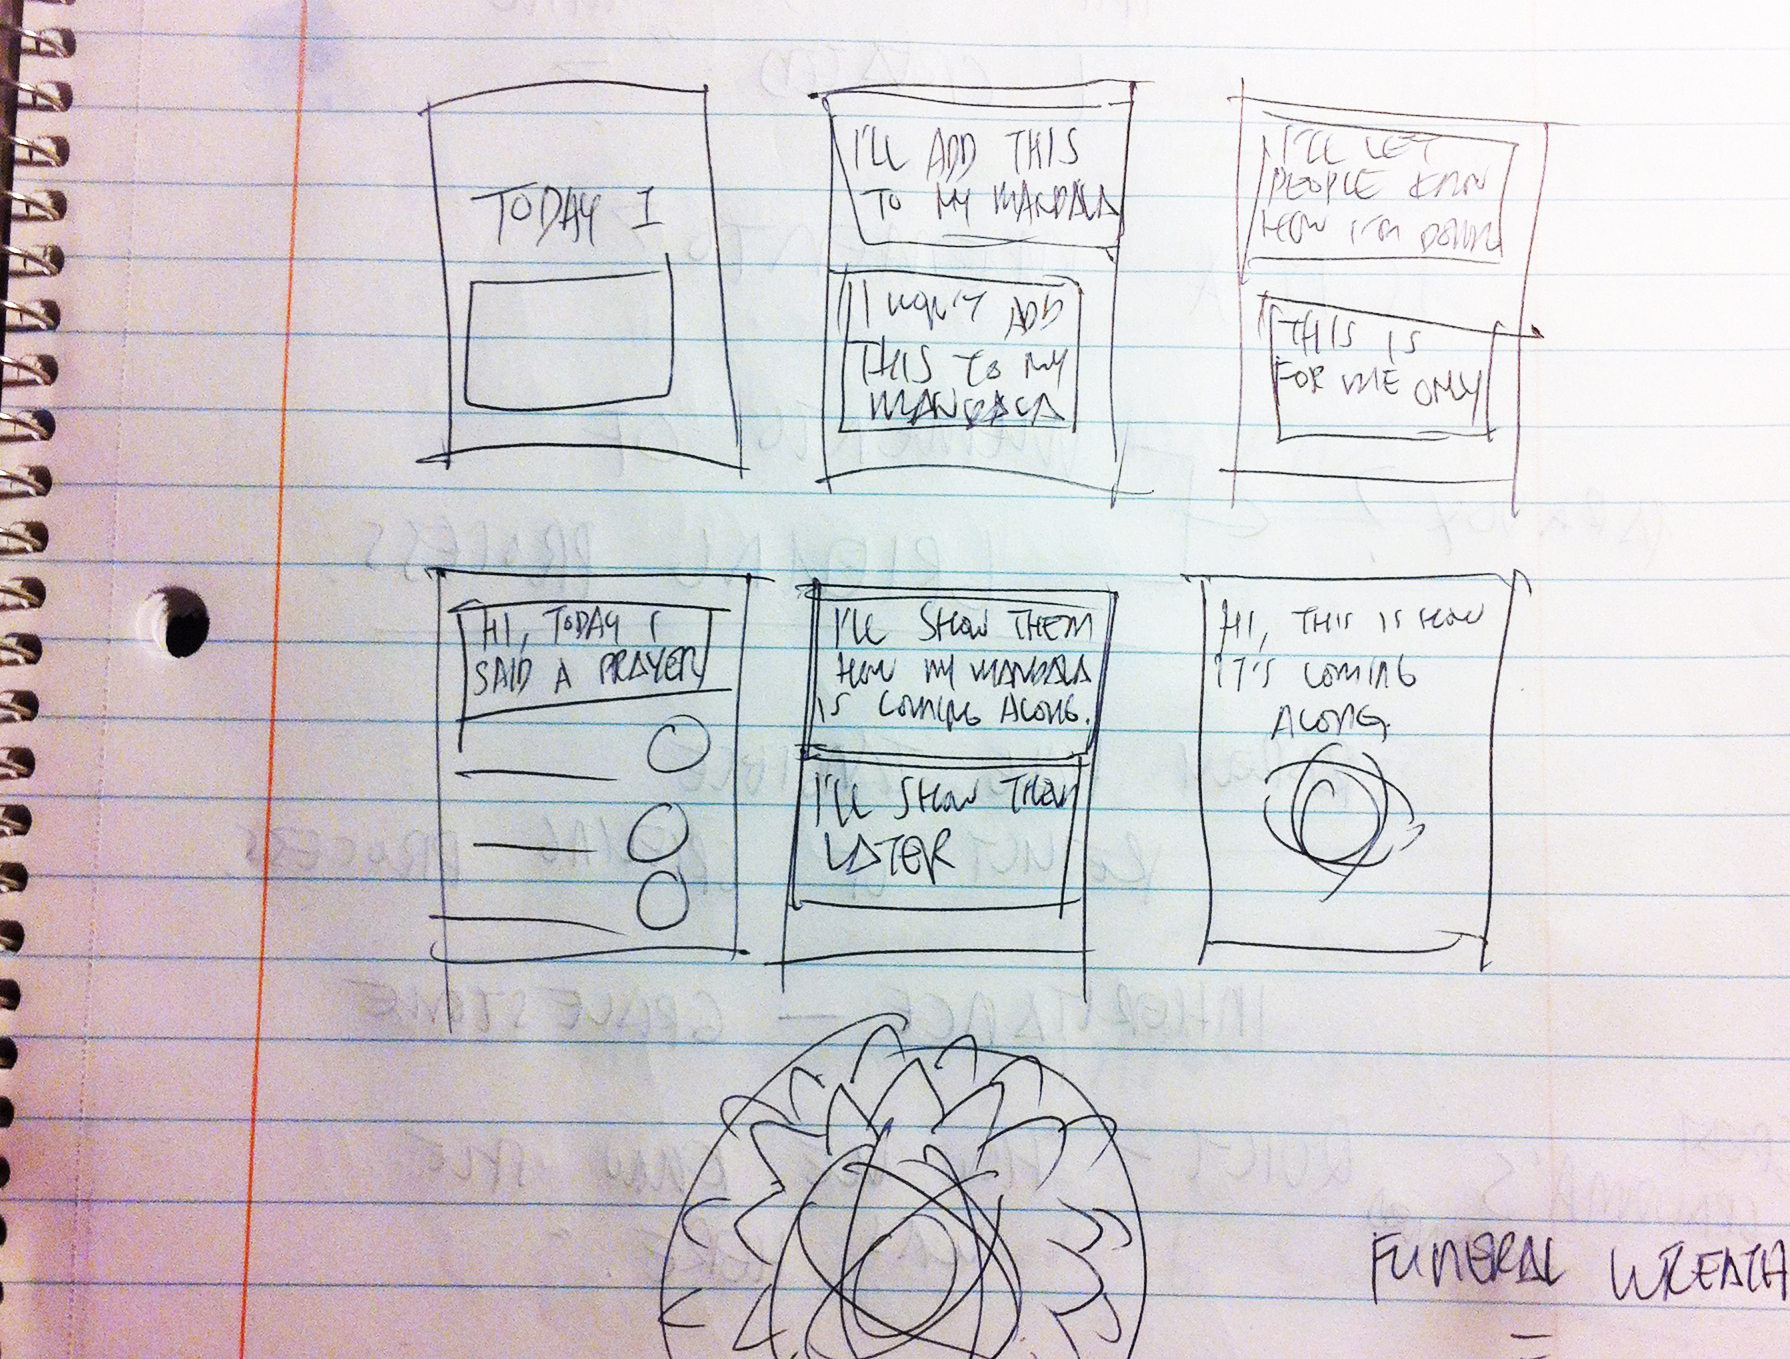 TODAY I
I'LL ADD THIS
TO MY MANDALA
I WON'T ADD
THIS TO MY
MANDALA
I'LL LET
PEOPLE KNOW
HOW I'M DOING
THIS IS
FOR ME ONLY
HI, TODAY I
SAID A PRAYER
I'LL SHOW THEM
HOW MY MANDALA
IS COMING ALONG.
I'LL SHOW THEM
LATER
HI, THIS IS HOW
IT'S COMING
ALONG.
FUNERAL WREATH